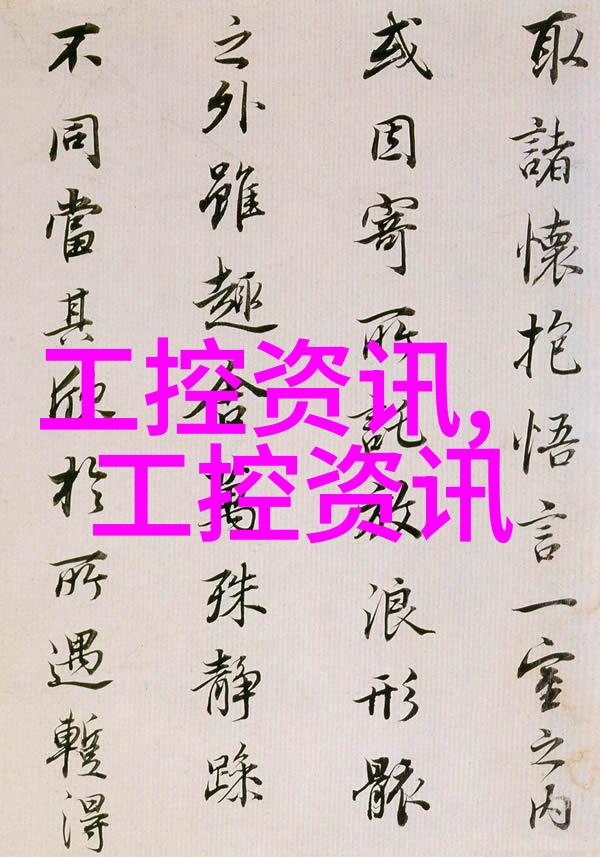 取諸懷抱悟言一室之内
或因寄所託放浪形骸
之外雖趣舍萬殊静躁
不同當其欣於所遇暫得
工控资讯,
工控资讯